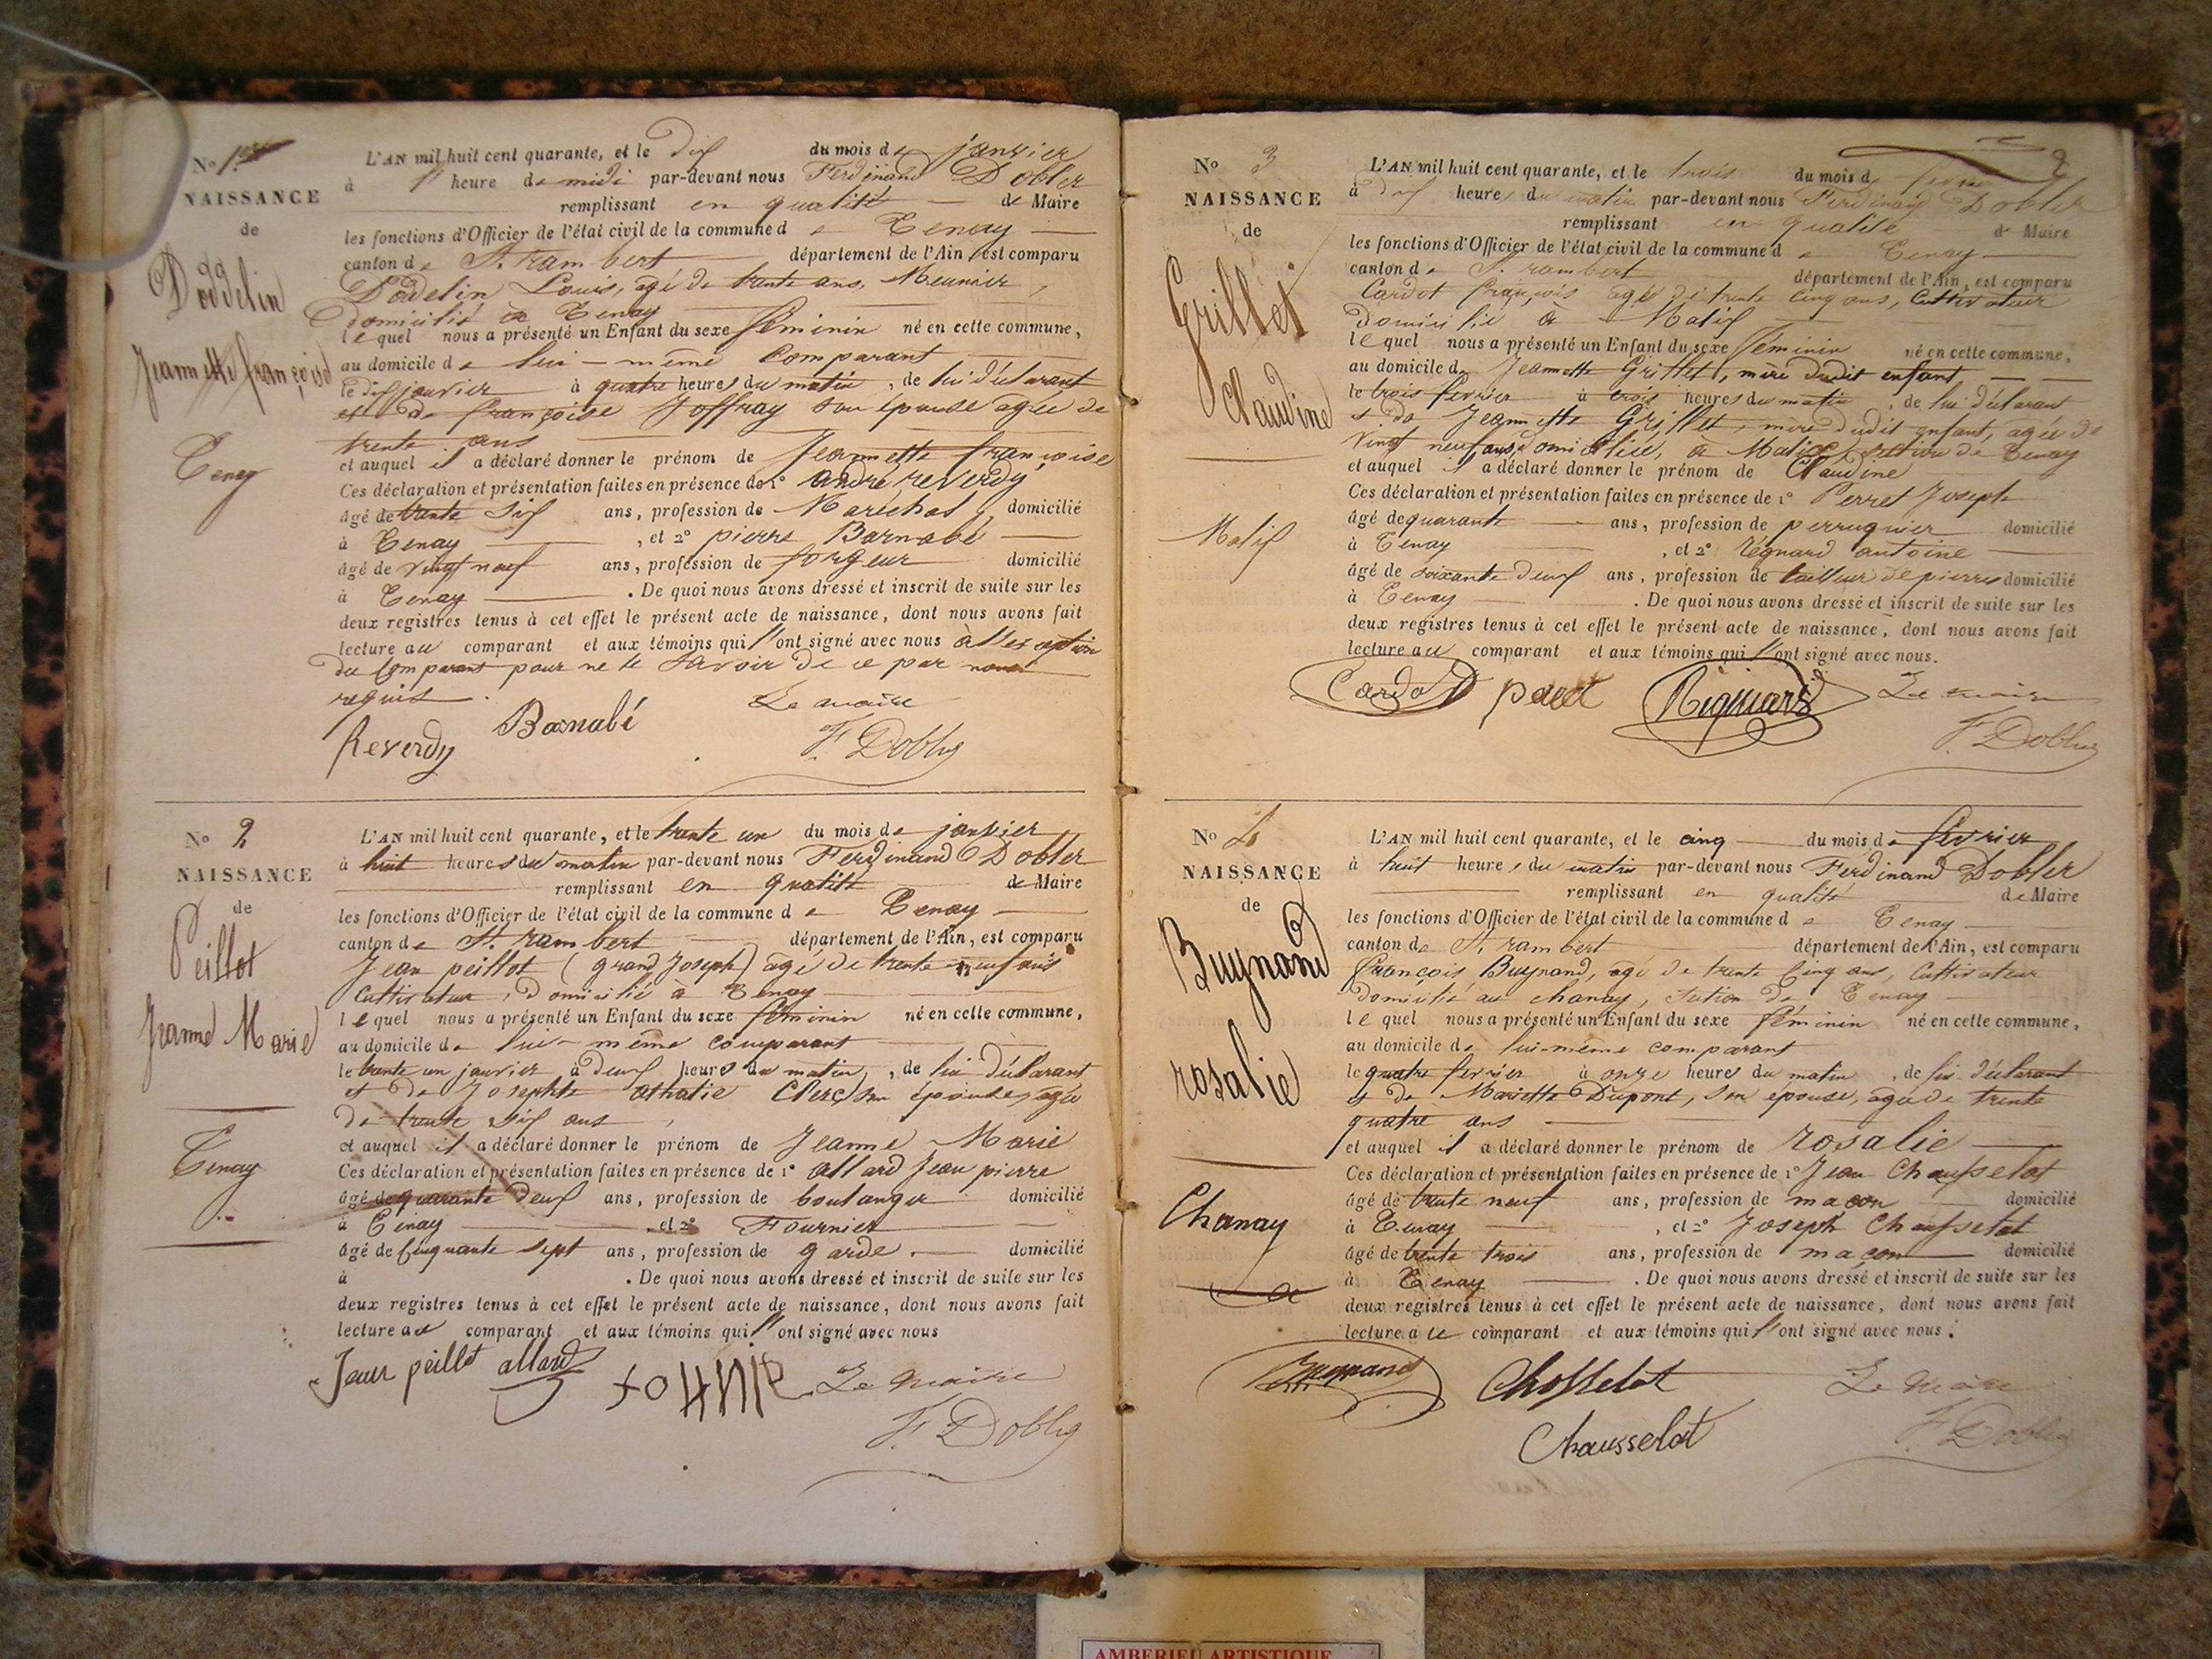 N° 1er
NAISSANCE
de
Doddelin
Jeannette françoise
Tenay
L'AN mil huit cent quarante, et le dix du mois de janvier
à 1e heure de midi par-devant nous Ferdinand Dobler
remplissant en qualité de Maire
les fonctions d'Officier de l'état civil de la commune de Tenay
canton de St. rambert département de l'Ain, est comparu
Dodelin Louis, agé de trente ans, Meunier,
domicilié à Tenay
lequel nous a présenté un Enfant du sexe féminin né en cette commune,
au domicile de lui-même Comparant
le dix janvier à quatre heures du matin, de lui déclarant
et de françoise Joffray son épouse agée de
trente ans
et auquel il a déclaré donner le prénom de Jeannette françoise
Ces déclaration et présentation faites en présence de 1° andré reverdy
âgé de trente six ans, profession de Maréchal, domicilié
à Tenay, et 2° pierre Barnabé
âgé de vingt neuf ans, profession de forgeur domicilié
à Tenay. De quoi nous avons dressé et inscrit de suite sur les
deux registres tenus à cet effet le présent acte de naissance, dont nous avons fait
lecture au comparant et aux témoins qui l'ont signé avec nous à l'exception
du Comparant pour ne le savoir de ce par nous
requis.
Reverdy Barnabé Le maire
F. Dobler
N° 2
NAISSANCE
de
Peillot
Jeanne Marie
Tenay
L'AN mil huit cent quarante, et le trente un du mois de janvier
à huit heures du matin par-devant nous Ferdinand Dobler
remplissant en qualité de Maire
les fonctions d'Officier de l'état civil de la commune de Tenay
canton de St. rambert département de l'Ain, est comparu
Jean peillot (grand Joseph) agé de trente neuf ans
Cultivateur, domicilié à Tenay
lequel nous a présenté un Enfant du sexe féminin né en cette commune,
au domicile de lui-même comparant
le trente un janvier à deux heures du matin, de lui déclarant
et de Josephte athalie Clerc, son épouse, agée
de trente six ans,
et auquel il a déclaré donner le prénom de Jeanne Marie
Ces déclaration et présentation faites en présence de 1° allard Jean pierre
âgé de quarante deux ans, profession de boulanger domicilié
à Tenay, et 2° Fournier
âgé de Cinquante sept ans, profession de garde. domicilié
à . De quoi nous avons dressé et inscrit de suite sur les
deux registres tenus à cet effet le présent acte de naissance, dont nous avons fait
lecture au comparant et aux témoins qui l'ont signé avec nous
Jean peillot allard Le Maire
F. Dobler
N° 3
NAISSANCE
de
Grillet
Claudine
Malix
L'AN mil huit cent quarante, et le trois du mois de fevrier
à dix heures du matin par-devant nous Ferdinand Dobler
remplissant en qualité de Maire
les fonctions d'Officier de l'état civil de la commune de Tenay
canton de St. rambert département de l'Ain, est comparu
Cardot françois agé de trente cinq ans, Cultivateur
domicilié à Malix
lequel nous a présenté un Enfant du sexe féminin né en cette commune,
au domicile de Jeannette Grillet, mère dudit enfant
le trois fevrier à trois heures du matin, de lui déclarant
et de Jeannette Grillet, mère dudit enfant, agée de
vingt neuf ans, domiciliée, à Malix section de Tenay
et auquel il a déclaré donner le prénom de Claudine
Ces déclaration et présentation faites en présence de 1° Perret Joseph
âgé de quarante ans, profession de perruquier domicilié
à Tenay, et 2° régnard antoine
âgé de soixante deux ans, profession de tailleur de pierres domicilié
à Tenay. De quoi nous avons dressé et inscrit de suite sur les
deux registres tenus à cet effet le présent acte de naissance, dont nous avons fait
lecture au comparant et aux témoins qui l'ont signé avec nous.
Cardot Le maire
F. Dobler
N° 4
NAISSANCE
de
Buynand
rosalie
Chanay
L'AN mil huit cent quarante, et le cinq du mois de fevrier
à huit heures du matin par-devant nous Ferdinand Dobler
remplissant en qualité de Maire
les fonctions d'Officier de l'état civil de la commune de Tenay
canton de St. rambert département de l'Ain, est comparu
françois Buynand, agé de trente Cinq ans, Cultivateur
domicilié au chanay, section de Tenay
lequel nous a présenté un Enfant du sexe féminin né en cette commune,
au domicile de lui-même comparant
le quatre fevrier à onze heures du matin, de lui déclarant
et de Mariette Dupont, son épouse, agée de trente
quatre ans
et auquel il a déclaré donner le prénom de rosalie
Ces déclaration et présentation faites en présence de 1° Jean Chausselat
âgé de trente neuf ans, profession de macon domicilié
à Tenay, et 2° Joseph Chausselat
âgé de trente trois ans, profession de maçon domicilié
à Tenay. De quoi nous avons dressé et inscrit de suite sur les
deux registres tenus à cet effet le présent acte de naissance, dont nous avons fait
lecture au comparant et aux témoins qui l'ont signé avec nous.
Buynand Chosselat Le Maire
Chausselat F. Dobler
AMBERIEU ARTISTIQUE